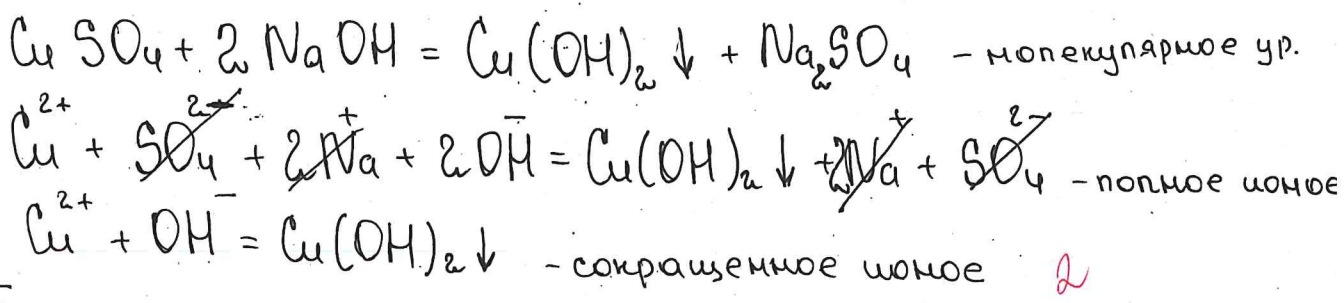 CuSO₄ + 2NaOH = Cu(OH)₂↓ + Na₂SO₄ - молекулярное ур.
Cu²⁺ + SO₄²⁻ + 2Na⁺ + 2OH⁻ = Cu(OH)₂↓ + 2Na⁺ + SO₄²⁻ - полное ионое
Cu²⁺ + OH⁻ = Cu(OH)₂↓ - сокращенное ионое 2